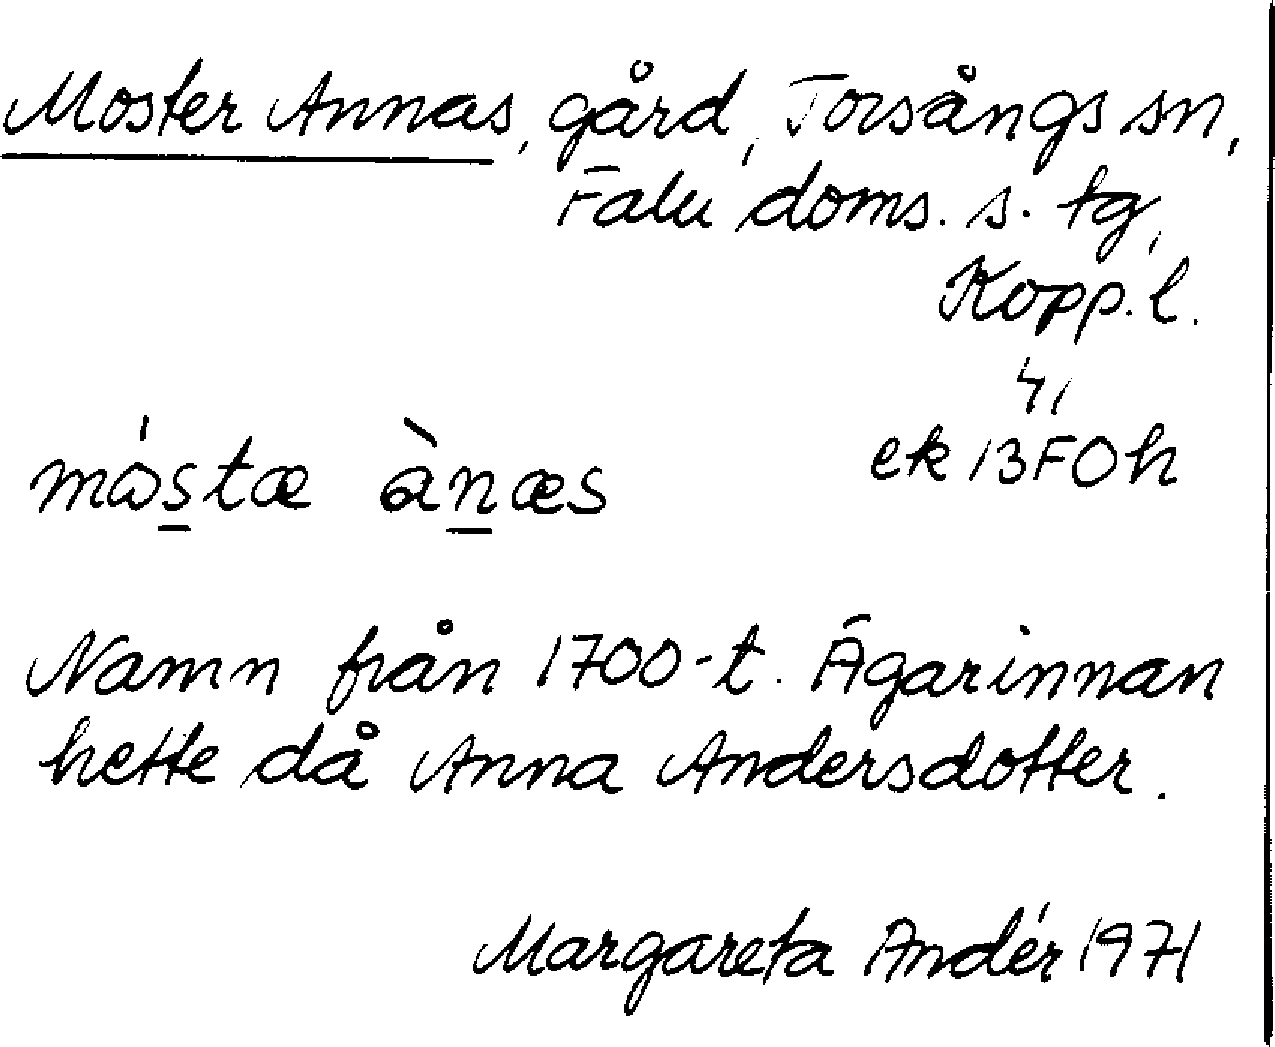 Moster Annas, gård, Torsångs sn,
Falu doms. s. tg,
Kopp. l.
41
ek 13F0h
mós̲tæ àn̲æs
Namn från 1700-t. Ägarinnan
hette då Anna Andersdotter.
Margareta Andér 1971